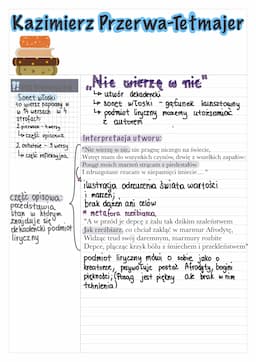 Kazimierz Przerwa-Tetmajer
„Nie wierzę w nic"
↳ utwór dekadencki
↳ sonet włoski - gatunek kunsztowny
↳ podmiot liryczny możemy utożsamiać
z autorem
Sonet włoski
to wiersz
w 14 wersach w 4
strofach:
2 pierwsze - 4 wersy
↳ część opisowa
2 ostatnie - 3 wersy
↳ część refleksyjna
Interpretacja utworu:
"Nie wierzę w nic, nie pragnę niczego na świecie,
Wstręt mam do wszystkich czynów, drwię z wszelkich zapałów:
Posągi moich marzeń strącam z piedestałów
I zdruzgotane rzucam w niepamięci śmiecie... "
ilustracja odrzucenia świata wartości
i marzeń,
brak dążeń ani celów
* metafora rzeźbiarza,
część opisowa:
przedstawia
stan w którym
znajduje się
dekadencki podmiot
liryczny
"A w przód je depcę z żalu tak dzikim szaleństwem
Jak rzeźbiarz, co chciał zakląć w marmur Afrodytę,
Widząc trud swój daremnym, marmury rozbite
Depce, plącząc krzyk bólu z śmiechem i przekleństwem"
podmiot liryczny mówi o sobie jako o
kreatorze, przywołuje postać Afrodyty, bogini
piękności; (Posąg jest piękny ale brak w nim
tchnienia)